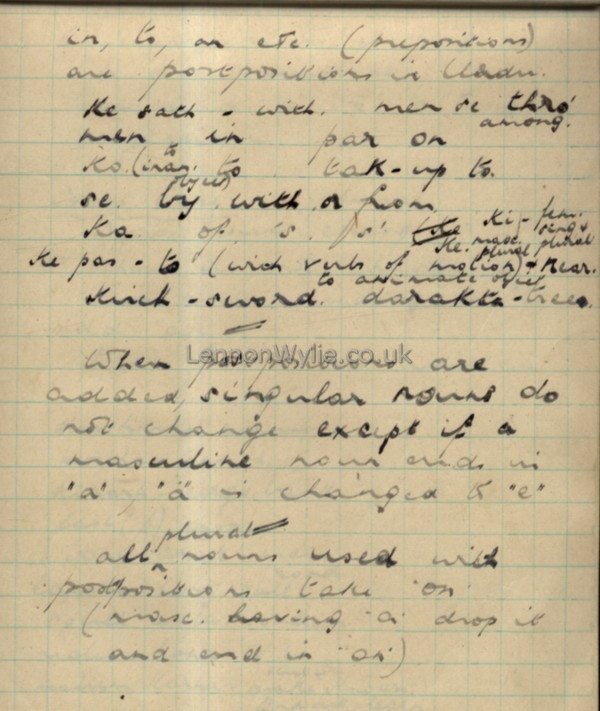 in, to, on etc. (prepositions)
are postpositions in Urdu.
Ke sath - with. men se thro'
among.
men in par on
Ko. (inan. to object) to tak - up to.
se. by with or from
Ka of 's s' Ki - fem. sing & plural
Ke. masc. plural
Ke pas - to (with verbs of motion) - near.
to animate object
- sword. darakht - tree.
LennonWylie.co.uk
When postpositions are
added, singular nouns do
not change except if a
masculine noun ends in
"a", "a" is changed to "e"
plural
all nouns used with
postpositions take "on"
(masc. having "a" drop it
and end in "on")